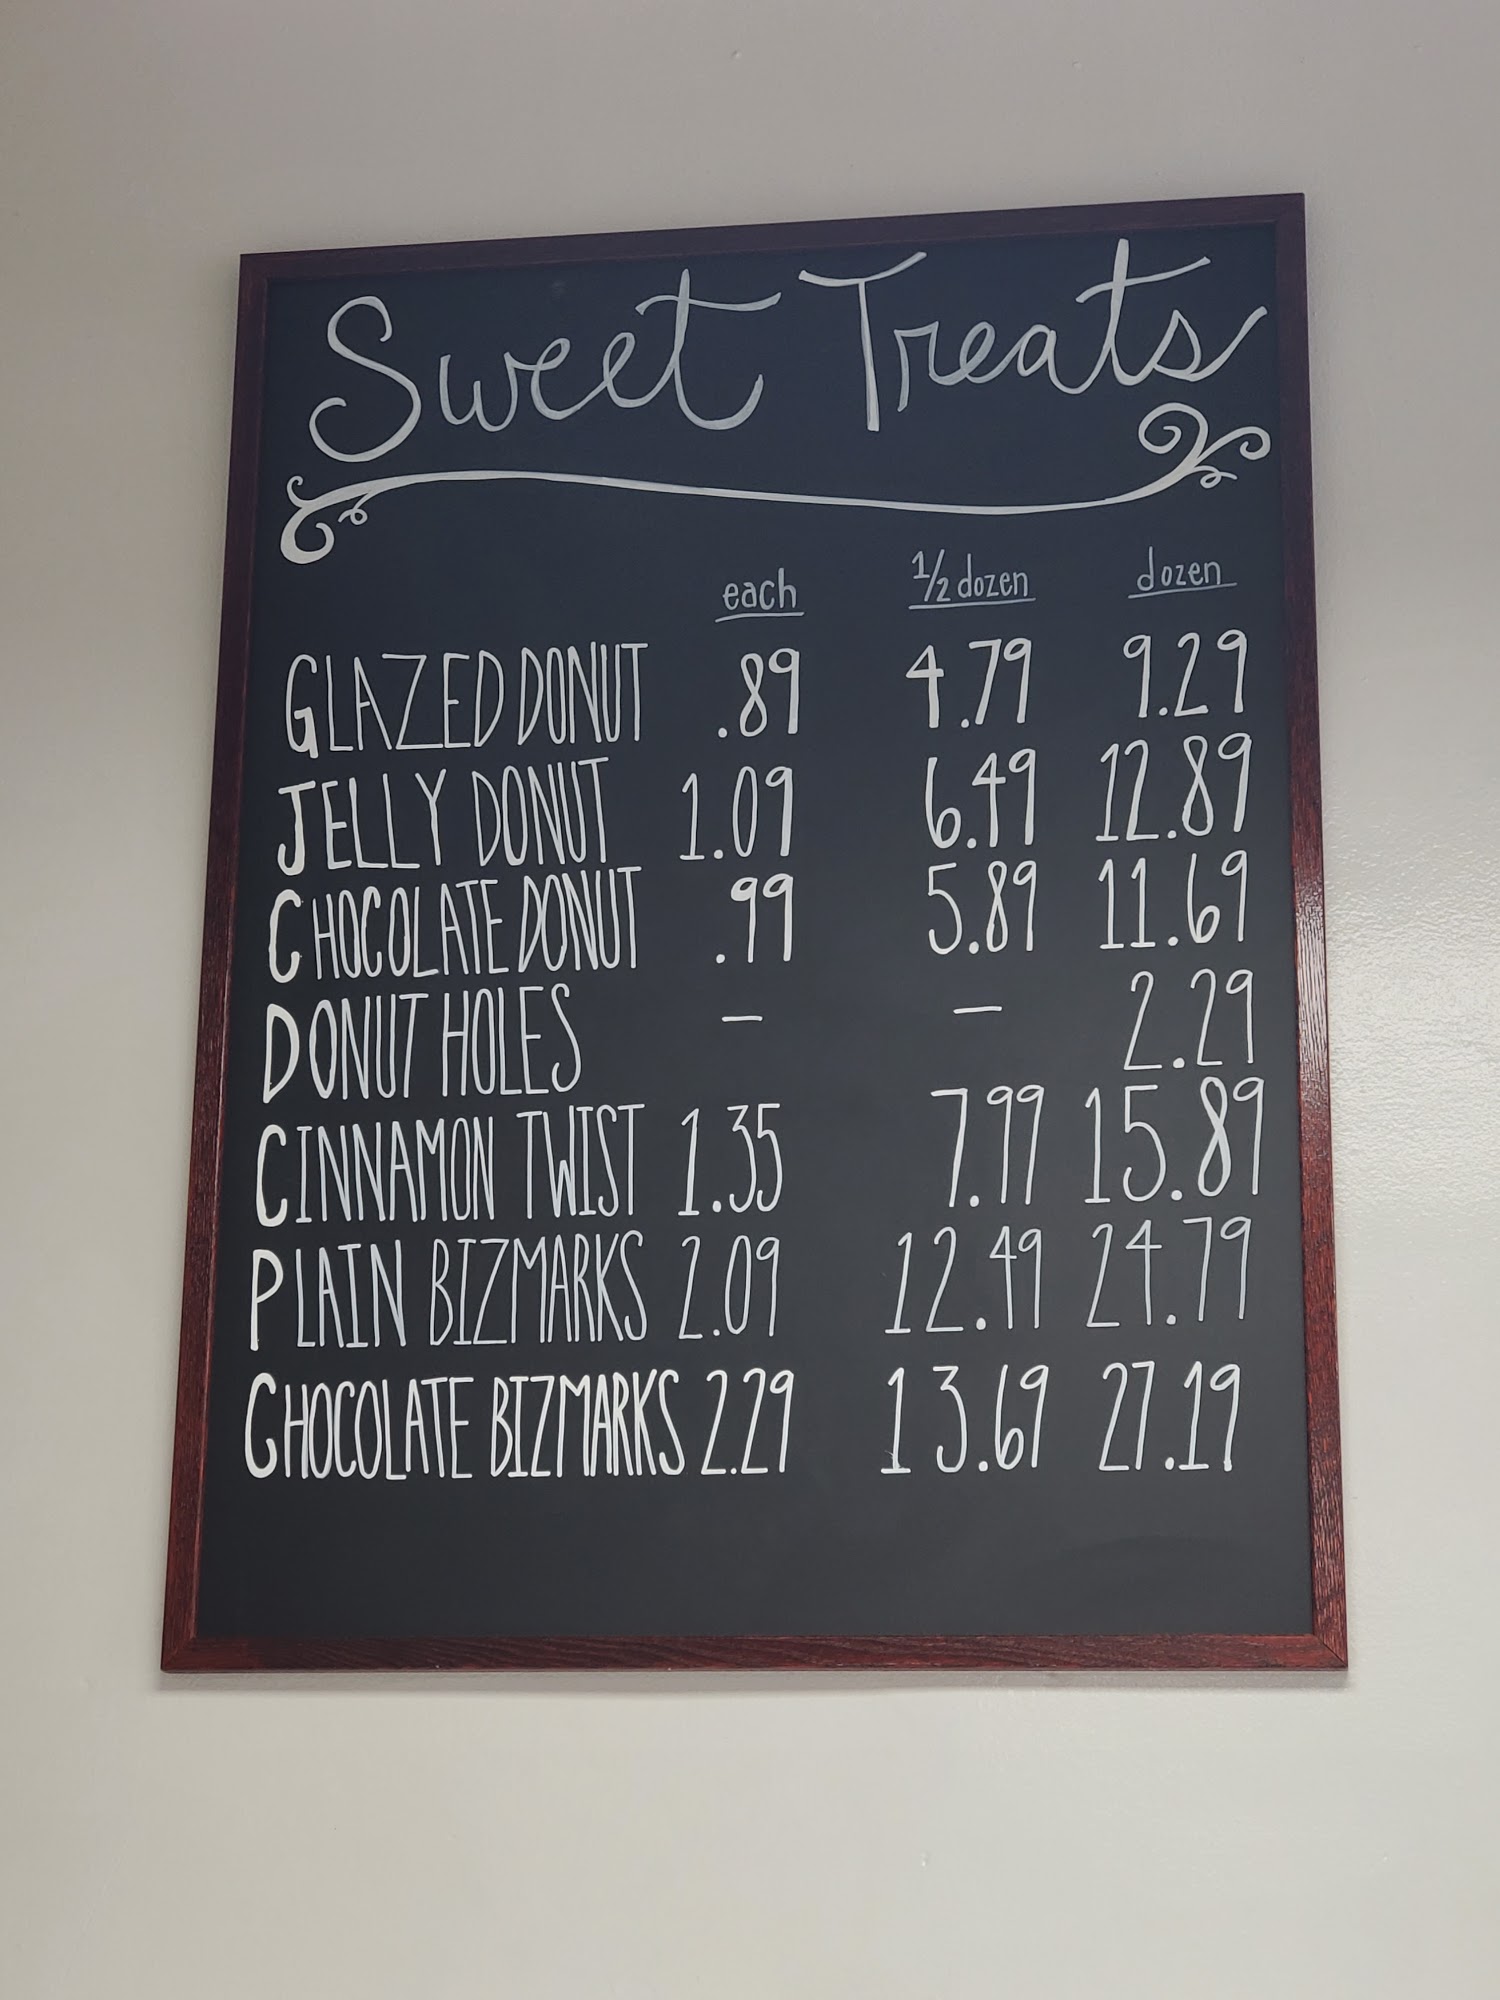 Sweet Treats
each 1/2 dozen dozen
GLAZED DONUT .89 4.79 9.29
JELLY DONUT 1.09 6.49 12.89
CHOCOLATE DONUT .99 5.89 11.69
DONUT HOLES — — 2.29
CINNAMON TWIST 1.35 7.99 15.89
PLAIN BIZMARKS 2.09 12.49 24.79
CHOCOLATE BIZMARKS 2.29 13.69 27.19